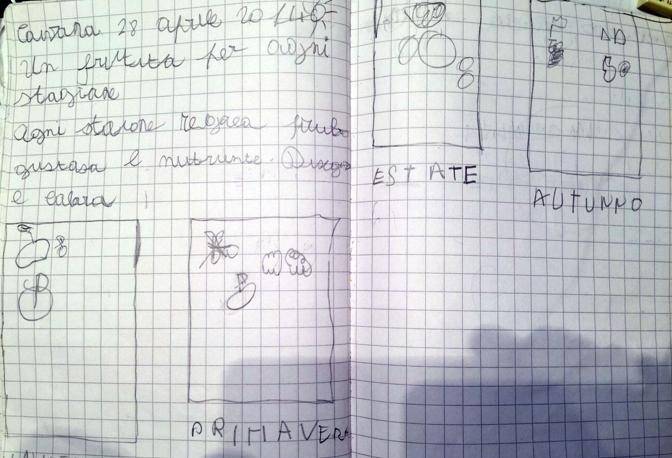 Catania 28 aprile 2014
Un frutta per aogni
stagiane
agni staione regaea frutto
gustasa e nutriente. Disegna
e calara
ESTATE
AUTUNNO
PRIMAVERA